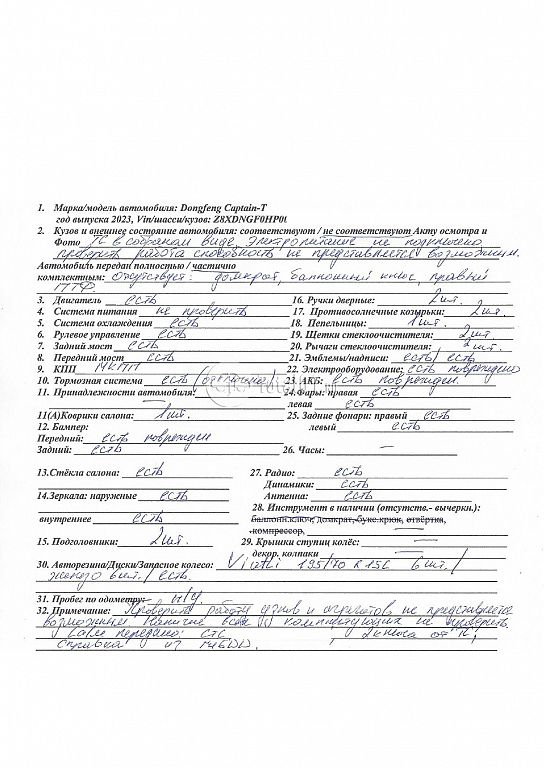 1. Марка/модель автомобиля: Dongfeng Captain-T
год выпуска 2023, Vin/шасси/кузов: Z8XDNGF0HP0
2. Кузов и внешнее состояние автомобиля: соответствуют / не соответствуют Акту осмотра и
Фото ТС в собранном виде. Электропитание не подключено
проверить работа способность не представляется возможным.
Автомобиль передан полностью / частично
комплектным: Отсутствует: домкрат, баллонный ключ, правый
ПТФ.
3. Двигатель есть 16. Ручки дверные: 2 шт.
4. Система питания не проверить 17. Противосолнечные козырьки: 2 шт.
5. Система охлаждения есть 18. Пепельницы: 1 шт.
6. Рулевое управление есть 19. Щетки стеклоочистителя: 2 шт.
7. Задний мост есть 20. Рычаги стеклоочистителя: 2 шт.
8. Передний мост есть 21. Эмблемы/надписи: есть / есть
9. КПП МКПП 22. Электрооборудование: есть повреждено
10. Тормозная система есть / 23. АКБ: есть поврежден.
11. Принадлежности автомобиля: 24. Фары: правая есть
левая есть
11(А)Коврики салона: 1 шт. 25. Задние фонари: правый есть
12. Бампер: левый есть
Передний: есть поврежден
Задний: есть 26. Часы: —
13. Стёкла салона: есть 27. Радио: есть
Динамики: есть
14. Зеркала: наружные есть Антенна: есть
28. Инструмент в наличии (отсутств.- вычеркн.):
внутреннее есть баллонн.ключ, домкрат, букс.крюк, отвёртка,
компрессор,
15. Подголовники: 2 шт. 29. Крышки ступиц колёс: —
декор. колпаки —
30. Авторезина/Диски/Запасное колесо: Viatti 195/70 R 15C 6 шт. /
железо 6 шт. / есть.
31. Пробег по одометру н/у
32. Примечание: Проверить работу узлов и агрегатов не представляется
возможным. Наличие всех комплектующих не проверить.
передано: СТС, 2 ключа от ТС,
Справка из ГИБДД.